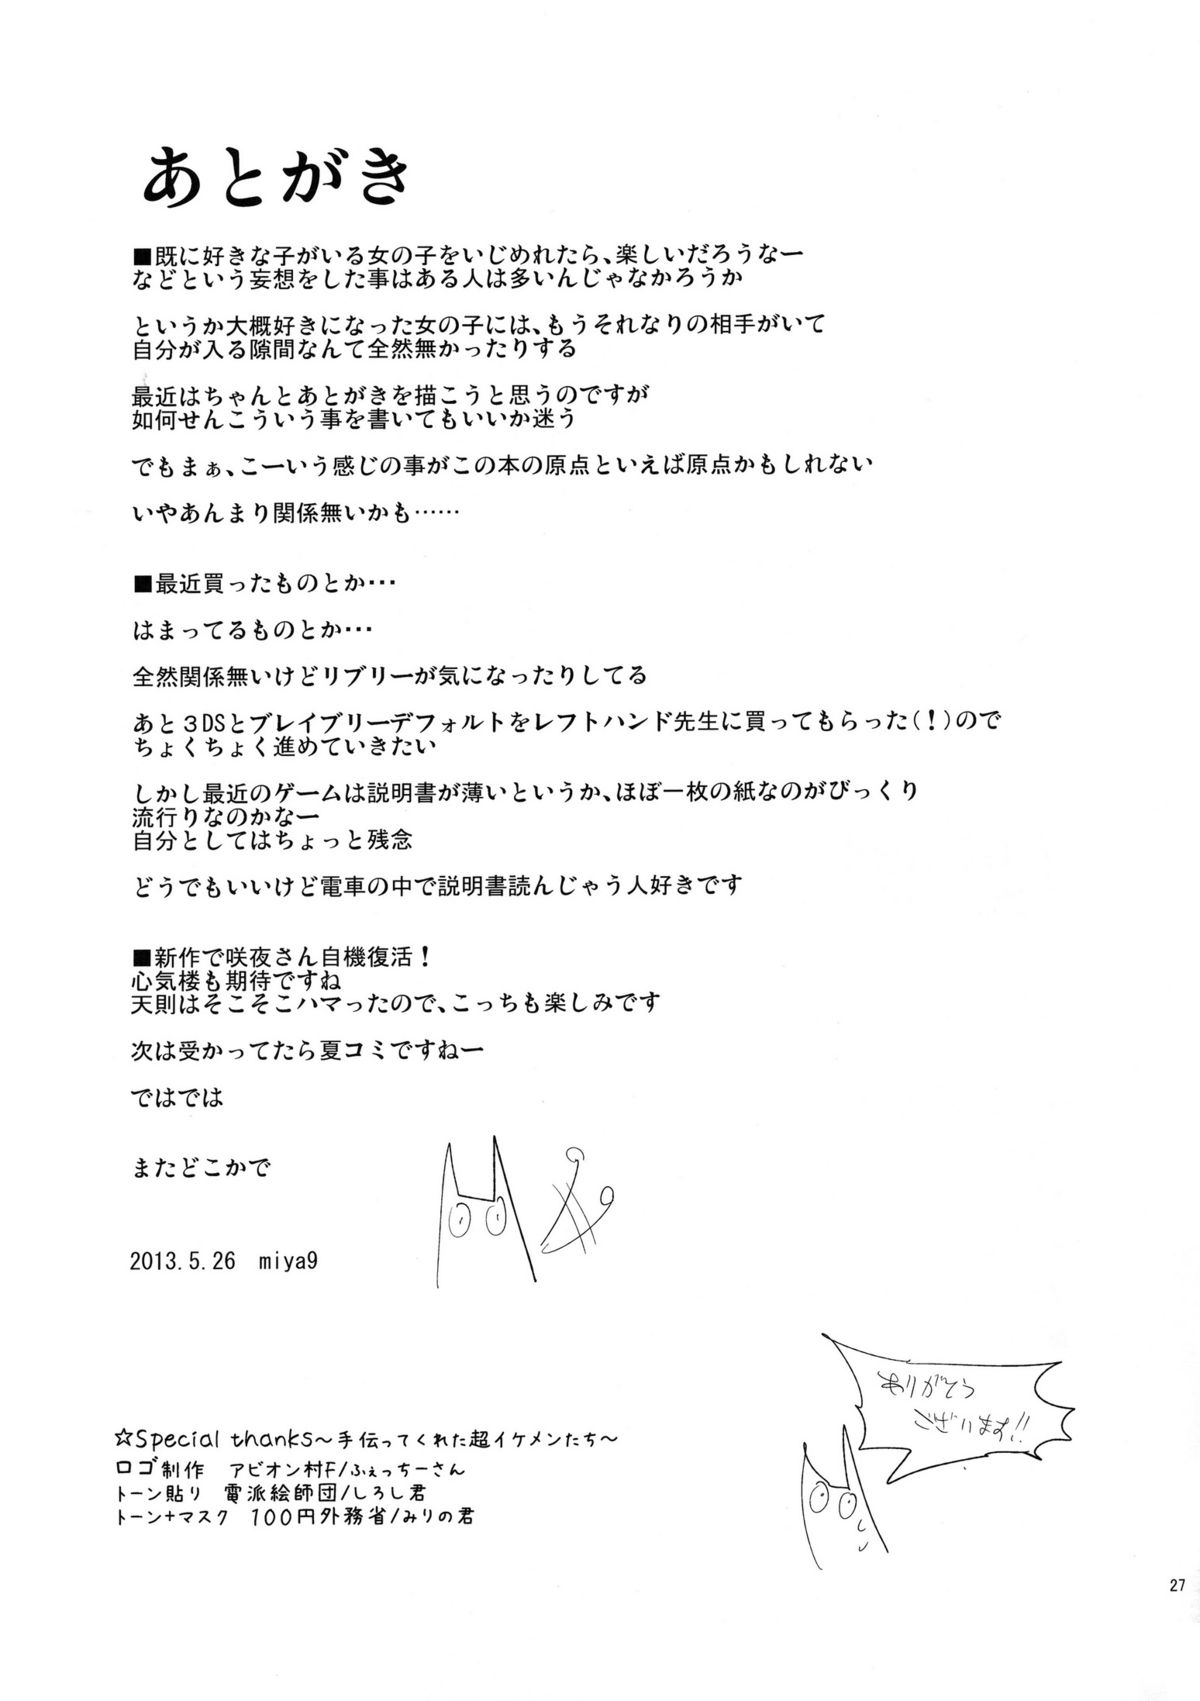 あとがき
■既に好きな子がいる女の子をいじめれたら、楽しいだろうなー
などという妄想をした事はある人は多いんじゃなかろうか
というか大概好きになった女の子には、もうそれなりの相手がいて
自分が入る隙間なんて全然無かったりする
最近はちゃんとあとがきを描こうと思うのですが
如何せんこういう事を書いてもいいか迷う
でもまぁ、こーいう感じの事がこの本の原点といえば原点かもしれない
いやあんまり関係無いかも……
■最近買ったものとか・・・
はまってるものとか・・・
全然関係無いけどリブリーが気になったりしてる
あと３DSとブレイブリーデフォルトをレフトハンド先生に買ってもらった(！)ので
ちょくちょく進めていきたい
しかし最近のゲームは説明書が薄いというか、ほぼ一枚の紙なのがびっくり
流行りなのかなー
自分としてはちょっと残念
どうでもいいけど電車の中で説明書読んじゃう人好きです
■新作で咲夜さん自機復活！
心気楼も期待ですね
天則はそこそこハマったので、こっちも楽しみです
次は受かってたら夏コミですねー
ではでは
またどこかで
2013.5.26 miya9
ありがとう
ございます!!
☆Special thanks～手伝ってくれた超イケメンたち～
ロゴ制作 アビオン村F/ふぇっちーさん
トーン貼り 電波絵師団/しろし君
トーン+マスク 100円外務省/みりの君
27